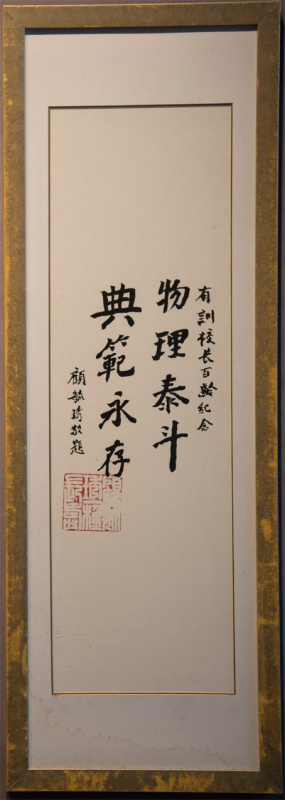 有訓校長百齡紀念
物理泰斗
典範永存
顧毓琇敬題